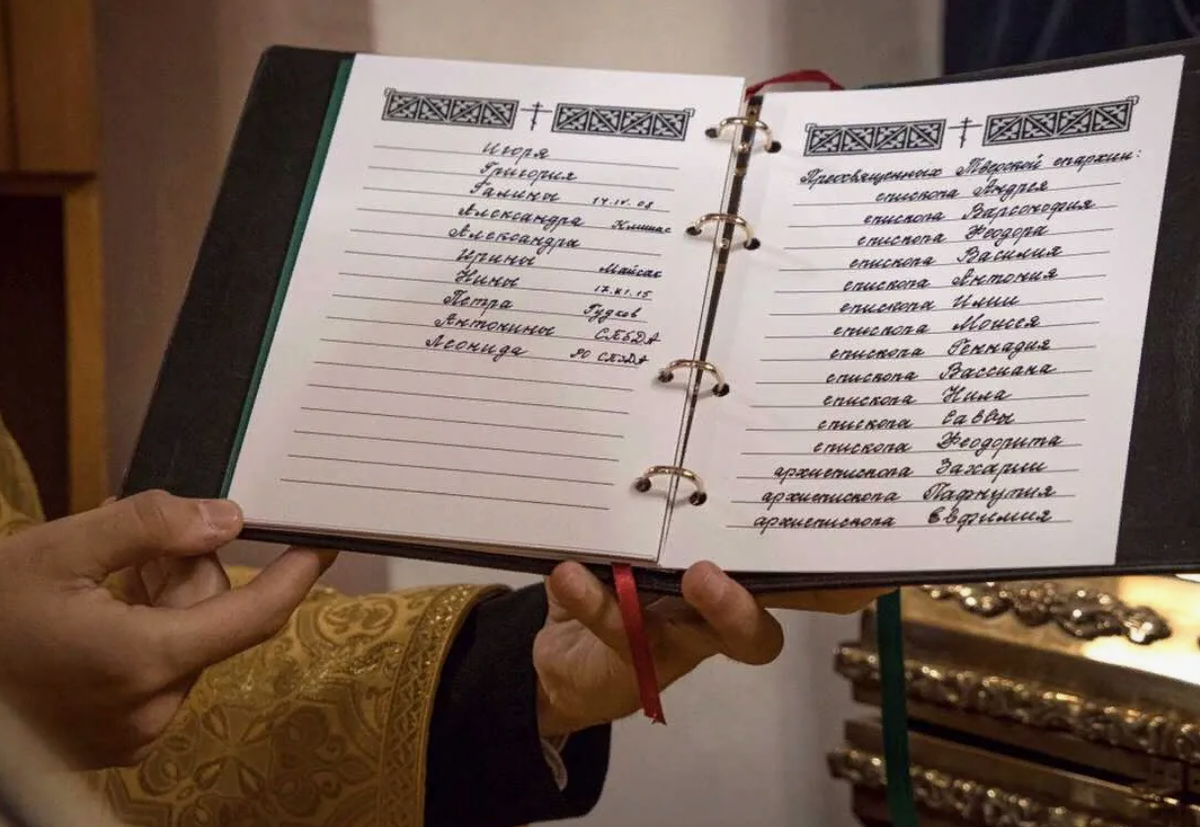 Игоря
Григория
Галины 14.IV.08
Александра Климас
Александра
Ирины Майсак
Нины 17.XI.15
Петра Гудков
Антонины
Леонида
Преосвященных Тверской епархии:
епископа Андрея
епископа Варсонофия
епископа Феодора
епископа Василия
епископа Антония
епископа Илии
епископа Моисея
епископа Геннадия
епископа Вассиана
епископа Нила
епископа Саввы
епископа Феодорита
архиепископа Захарии
архиепископа Пафнутия
архиепископа Евфимия